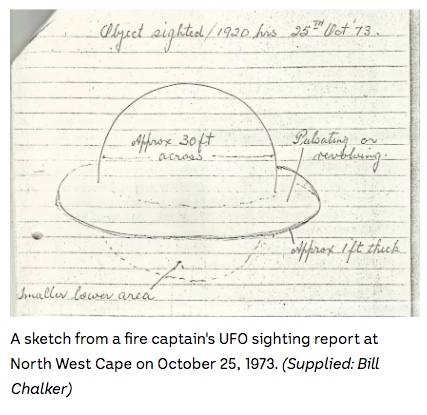 Object sighted/1920 hrs 25TH Oct '73.
Approx 30ft
across
Pulsating or
revolving.
Approx 1ft thick
Smaller lower area
A sketch from a fire captain's UFO sighting report at
North West Cape on October 25, 1973. (Supplied: Bill
Chalker)